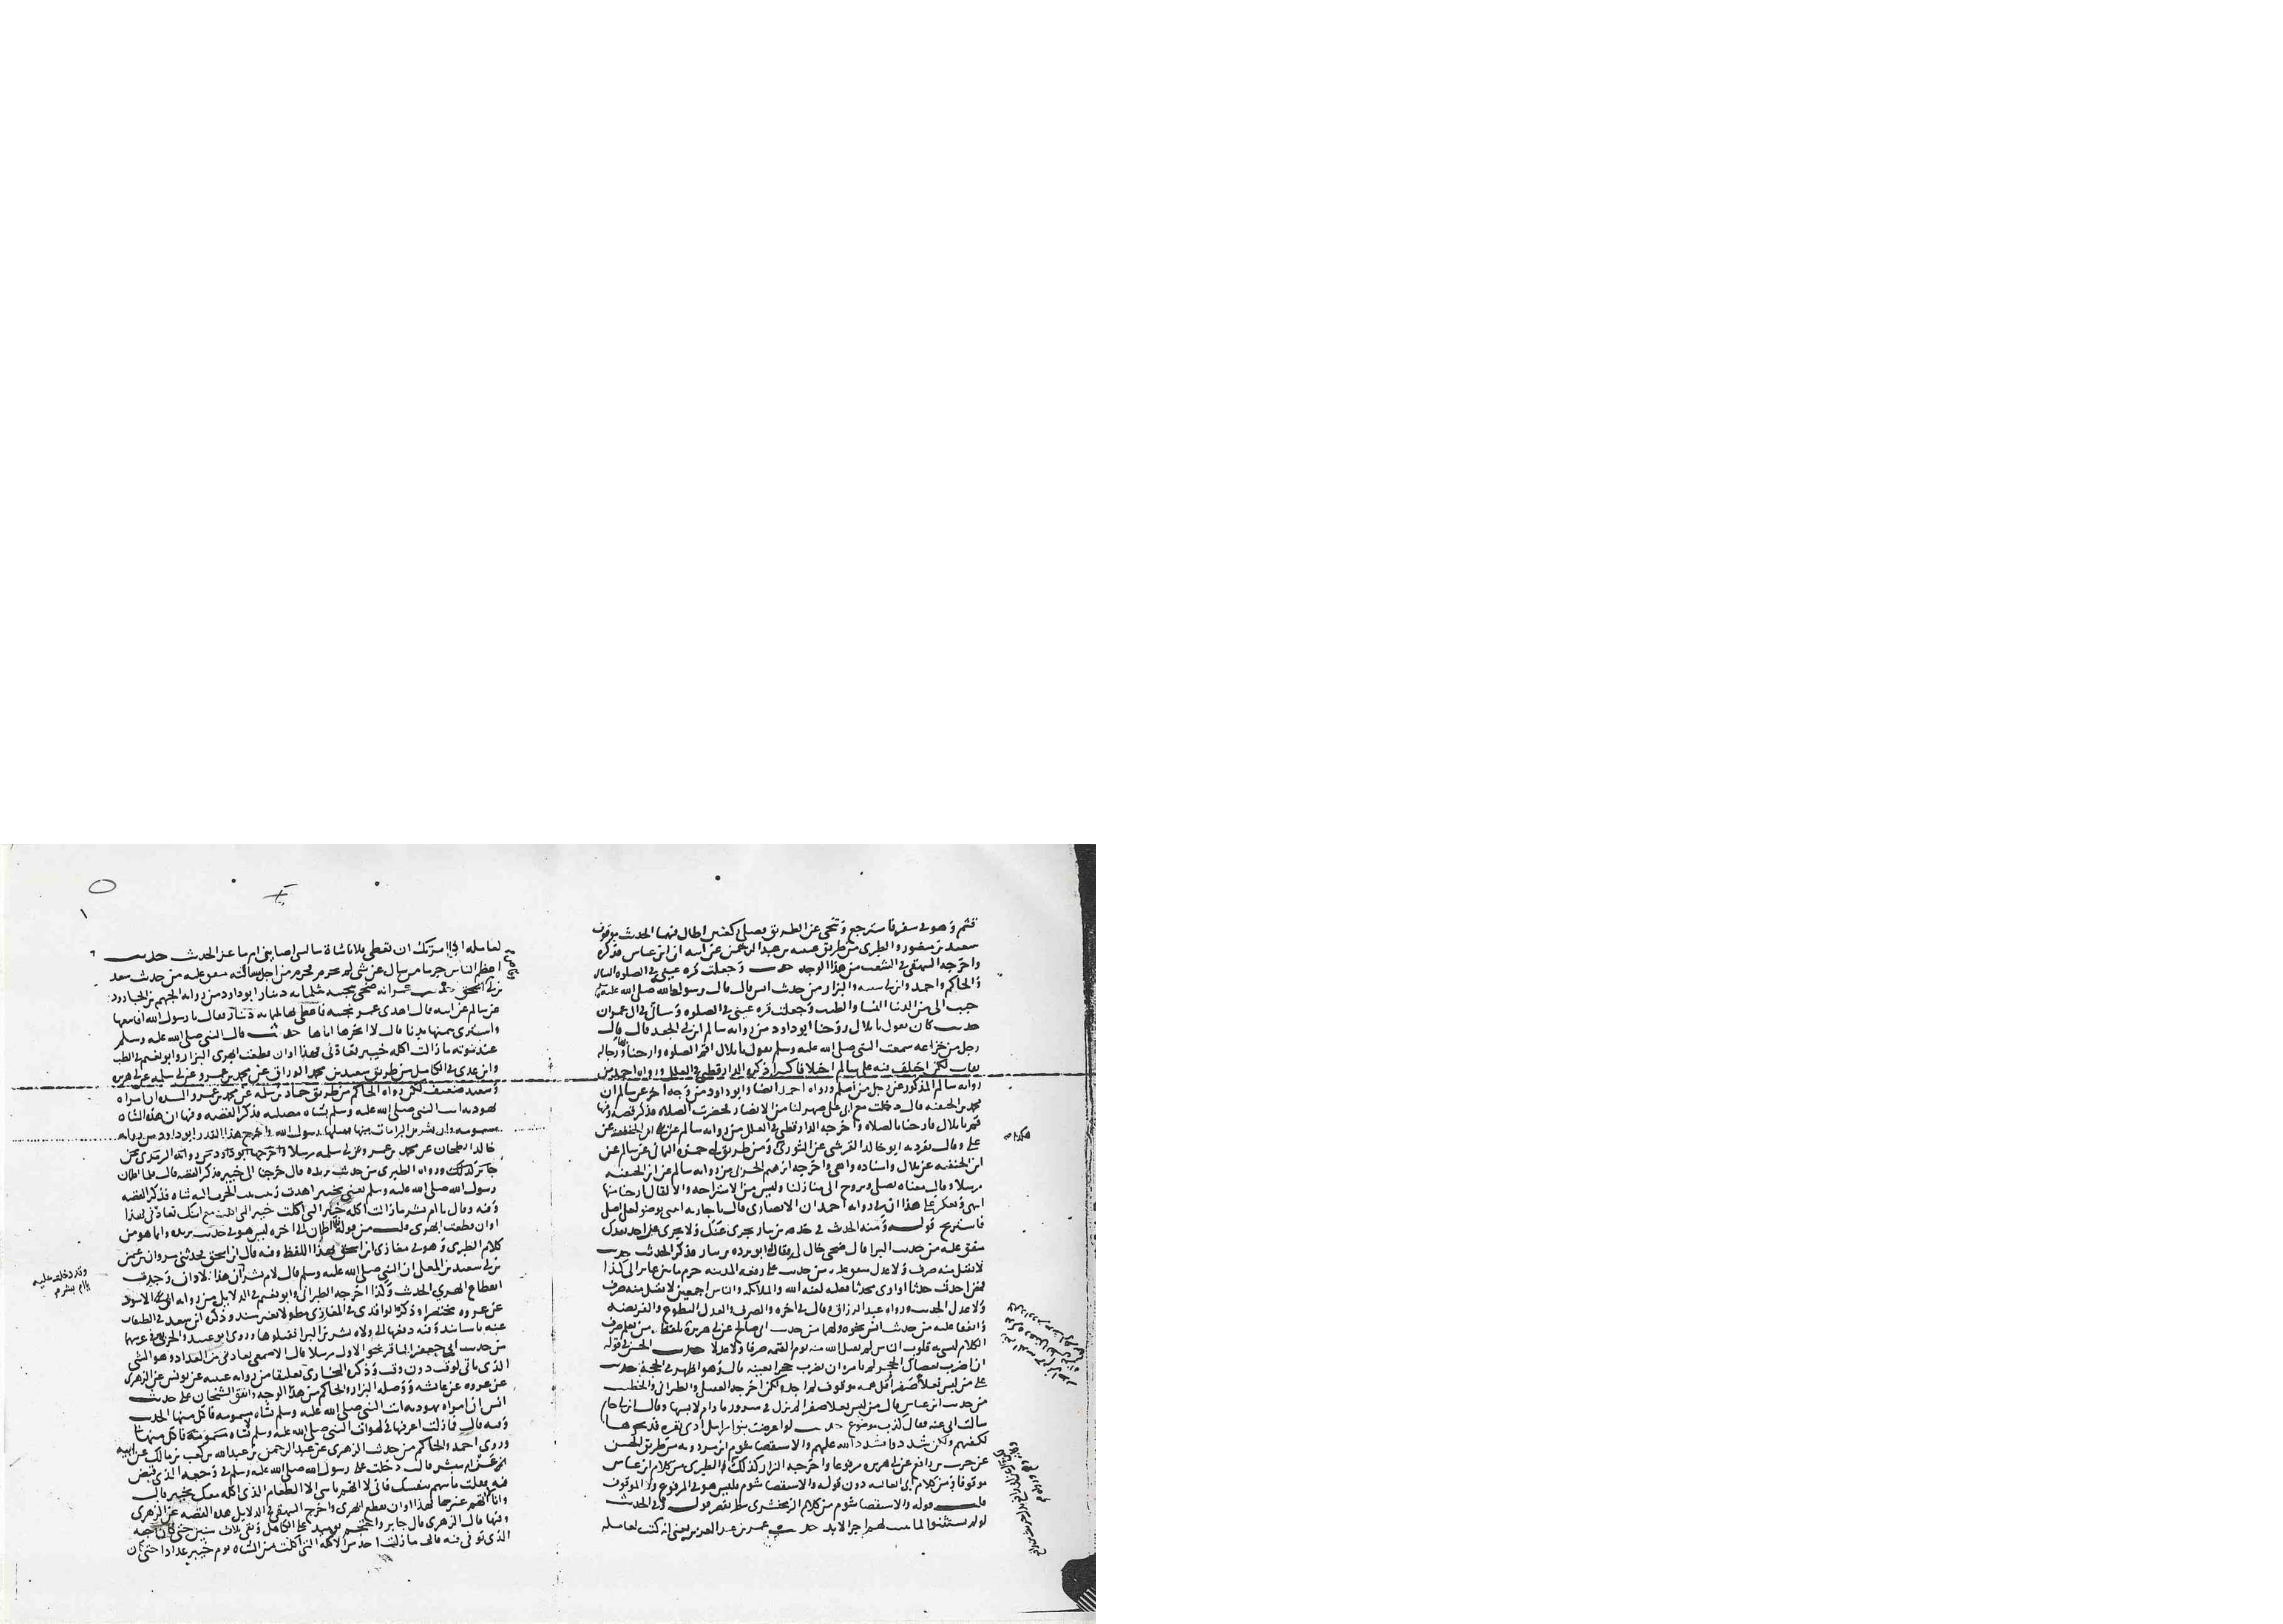 قثم وهو في سفر فاسترجع وتنحى عن الطريق فصلى ركعتين اطال فيهما الحديث موقوف
سعيد بن منصور والطبري من طريق عيينه بن عبد الرحمن عن ابيه ان ابن عباس فذكره
واخرجه البيهقي في الشعب من هذا الوجه حديث وجعلت قره عيني في الصلوه النسائي
والحاكم واحمد وابن ابي شيبه والبزار من حديث انس قال قال رسول الله صلى الله عليه
حبب الي من الدنيا النسا والطيب وجعلت قره عيني في الصلوه وسياتي في ال عمران
حديث كان يقول يا بلال روحنا ابو داود من روايه سالم بن ابي الجعد قال قال
رجل من خزاعه سمعت النبي صلى الله عليه وسلم يقول يا بلال اقم الصلوه وارحنا بها ورجاله
ثقات لكن اختلف فيه على سالم اختلافا كثيرا ذكره الدارقطني في العلل ورواه احمد من
روايه سالم المذكور عن رجل من اسلم ورواه احمد ايضا وابو داود من وجه اخر عن سالم ان
محمد بن الحنفيه قال دخلت مع ابي على صهر لنا من الانصار فحضرت الصلاه فذكر قصه وفيها
قم يا بلال فارحنا بالصلاه واخرجه الدارقطني في العلل من روايه سالم عن ابن الحنفيه عن
علي وقال تفرد به ابو خالد القرشي عن الثوري ومن طريق ابي حمزه الثمالي عن سالم عن
ابن الحنفيه عن بلال واسناده واهي واخرجه ابرهيم الحربي من روايه سالم عن ابن الحنفيه
مرسلا وقال معناه نصلي ونروح الى منازلنا وليس من الاستراحه والا لقال ارحنا منها
انتهى ويعكر على هذا ان في روايه احمد ان الانصاري قال يا جاريه ايتني بوضو لعلي اصلي
فاستريح قوله ومنه الحديث في جذعه بن نيار تجزي عنك ولا تجزي عن احد بعدك
متفق عليه من حديث البرا قال ضحى خال لي يقال له ابو برده بن نيار فذكر الحديث حديث
لا يقبل منه صرف ولا عدل متفق عليه من حديث علي رفعه المدينه حرم ما بين عاير الى كذا
فمن احدث حدثا او اوى محدثا فعليه لعنه الله والملايكه والناس اجمعين لا يقبل منه صرف
ولا عدل الحديث ورواه عبد الرزاق وقال في اخره والصرف والعدل التطوع والفريضه
واتفقا عليه من حديث انس نحوه ولهما من حديث ابي صالح عن ابي هريرة بلفظ من تعلم صرف
الكلام ليسبي به قلوب الناس لم يقبل الله منه يوم القيمه صرفا ولا عدلا حديث الحسن في قوله
ان اضرب بعصاك الحجر لم يامره ان يضرب حجرا بعينه قال وهو اظهر في الحجة حديث
علي من لبس نعلا صفرا قل همه موقوف لم اجده لكن اخرجه العقيلي والطبراني والخطيب
من حديث ابن عباس قال من لبس نعلا صفرا لم يزل في سرور ما دام لابسها وقال ابن ابي حاتم
سالت ابي عنه فقال كذب موضوع حديث لو اعترضت بنو اسرايل ادنى بقره فذبحوها
لكفتهم ولكن شددوا فشدد الله عليهم والاستقصا شوم ابن مردويه من طريق الحسن
عن ابي رافع عن ابي هريره مرفوعا واخرجه البزار كذلك والطبري من كلام ابن عباس
موقوفا ومن كلام ابي العاليه دون قوله والاستقصا شوم فليس هو في المرفوع ولا الموقوف
قلت قوله والاستقصا شوم من كلام الزمخشري قوله وفي الحديث
لو لم يستثنوا لما بينت لهم اخر الابد حديث عمر بن عبد العزيز يعني انه كتب لعامله
لعامله اذا امرتك ان تعطي فلانا شاة سالتني اضاين ام ماعز الحديث حديث
اعظم الناس جرما من سال عن شي لم يحرم فحرم من اجل مسالته متفق عليه من حديث سعد
حديث عمر انه ضحى بنجيبه بثلثمايه دينار ابو داود من روايه الجهم بن الجارود
عن سالم عن ابيه قال اهدى عمر نجيبه فاعطي بها ثلثمايه دينار فقال يا رسول الله افابيعها
واشتري بثمنها بدنا قال لا انحرها اياها حديث قال النبي صلى الله عليه وسلم
عند موته ما زالت اكله خيبر تعادني فهذا اوان قطعت ابهري البزار وابو نعيم في الطب
وابن عدي في الكامل من طريق سعيد بن محمد الوراق عن محمد بن عمرو عن ابي سلمه عن ابي هريره
وسعيد ضعيف لكن رواه الحاكم من طريق حماد بن سلمه عن محمد بن عمرو ان امراه
يهوديه اتت النبي صلى الله عليه وسلم بشاه مصليه فذكر القصه وفيها ان هذه الشاه
مسمومه وان بشر بن البرا مات منها فقتلها رسول الله واخرج هذا القدر ابو داود من روايه
خالد الطحان عن محمد بن عمرو عن ابي سلمه مرسلا واخرجها ابو داود من روايه الزهري عن
جابر كذلك ورواه الطبري من حديث بريده قال خرجنا الى خيبر فذكر القصه قال فلما اطمان
رسول الله صلى الله عليه وسلم يعني بخيبر اهدت زينب بنت الحرث اليه شاه فذكر القصه
وفيه وقال يا ام بشر ما زالت اكله خيبر التي اكلت مع ابنك تعادني فهذا
اوان قطعت ابهري قلت من قوله فلما اطمان الى اخره ليس هو في حديث بريده وانما هو من
كلام الطبري وهو في مغازي ابن اسحق بهذا اللفظ وفيه قال ابن اسحق فحدثني مروان بن عثمن
بن ابي سعيد بن المعلى ان النبي صلى الله عليه وسلم قال لام بشر ان هذا الاوان وجدت
انقطاع ابهري الحديث وكذا اخرجه الطبراني وابو نعيم في الدلايل من روايه ابي الاسود
عن عروه مختصرا وذكره الواقدي في المغازي مطولا بغير سند وذكره ابن سعد في الطبقات
عنه باسانيد وفيه دفعها الى ولاه بشر بن البرا فقتلوها وروى ابو عبيد والحربي في غريبهما
من حديث ابي جعفر الباقر نحو الاول مرسلا قال الاصمعي تعادني من العداد وهو الشي
الذي ياتي لوقت دون وقت وذكره البخاري تعليقا من روايه عنبسه عن يونس عن الزهري
عن عروه عن عايشه ووصله البزار والحاكم من هذا الوجه واتفق الشيخان على حديث
انس ان امراه يهوديه اتت النبي صلى الله عليه وسلم بشاه مسمومه فاكل منها الحديث
وفيه قال فما زلت اعرفها في لهوات النبي صلى الله عليه وسلم
وروى احمد والحاكم من حديث الزهري عن عبد الرحمن بن عبد الله بن كعب بن مالك عن ابيه
عن ام مبشر قالت دخلت على رسول الله صلى الله عليه وسلم في وجعه الذي قبض
فيه فقلت ما تتهم بنفسك فاني لا اتهم بابني الا الطعام الذي اكله معك بخيبر قال
وانا لا اتهم غيرها فهذا اوان قطع ابهري واخرج البيهقي في الدلايل هذه القصه عن الزهري
وفيها قال الزهري قال جابر واحتجم يوميذ على الكاهل وبقي ثلاث سنين حتى كان وجعه
الذي توفي فيه فقال ما زلت اجد من الاكله التي اكلت من الشاه يوم خيبر عدادا حتى كان
وقد دخلت عليه
ام بشر